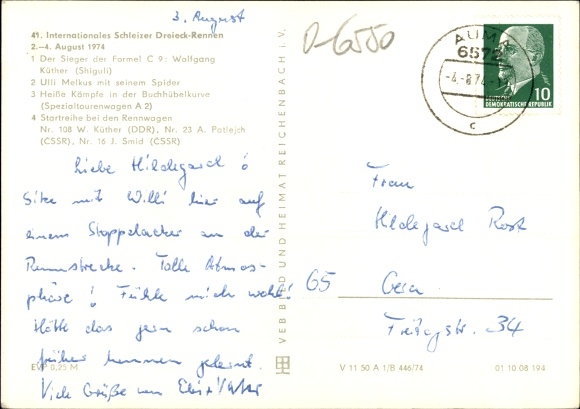 3. August
41. Internationales Schleizer Dreieck-Rennen
2.–4. August 1974
1 Der Sieger der Formel C 9: Wolfgang
Küther (Shiguli)
2 Ulli Melkus mit seinem Spider
3 Heiße Kämpfe in der Buchhübelkurve
(Spezialtourenwagen A 2)
4 Startreihe bei den Rennwagen
Nr. 108 W. Küther (DDR), Nr. 23 A. Patlejch
(ČSSR), Nr. 16 J. Smid (ČSSR)
Liebe Hildegard!
Sitze mit Willi hier auf
einem Stoppelacker an der
Rennstrecke. Tolle Atmos-
phäre! Fühle mich wohl!
Hätte das gern schon
früher kennen gelernt.
Viele Grüße von
EVP 0,25 M
VEB BILD UND HEIMAT REICHENBACH i. V.
0-6550
AUMA
6572
-4.-8.74-
c
10
DEUTSCHE
DEMOKRATISCHE REPUBLIK
Frau
Hildegard Rost
65 Gera
Freitagstr. 34
V 11 50 A 1/B 446/74
01 10 08 194